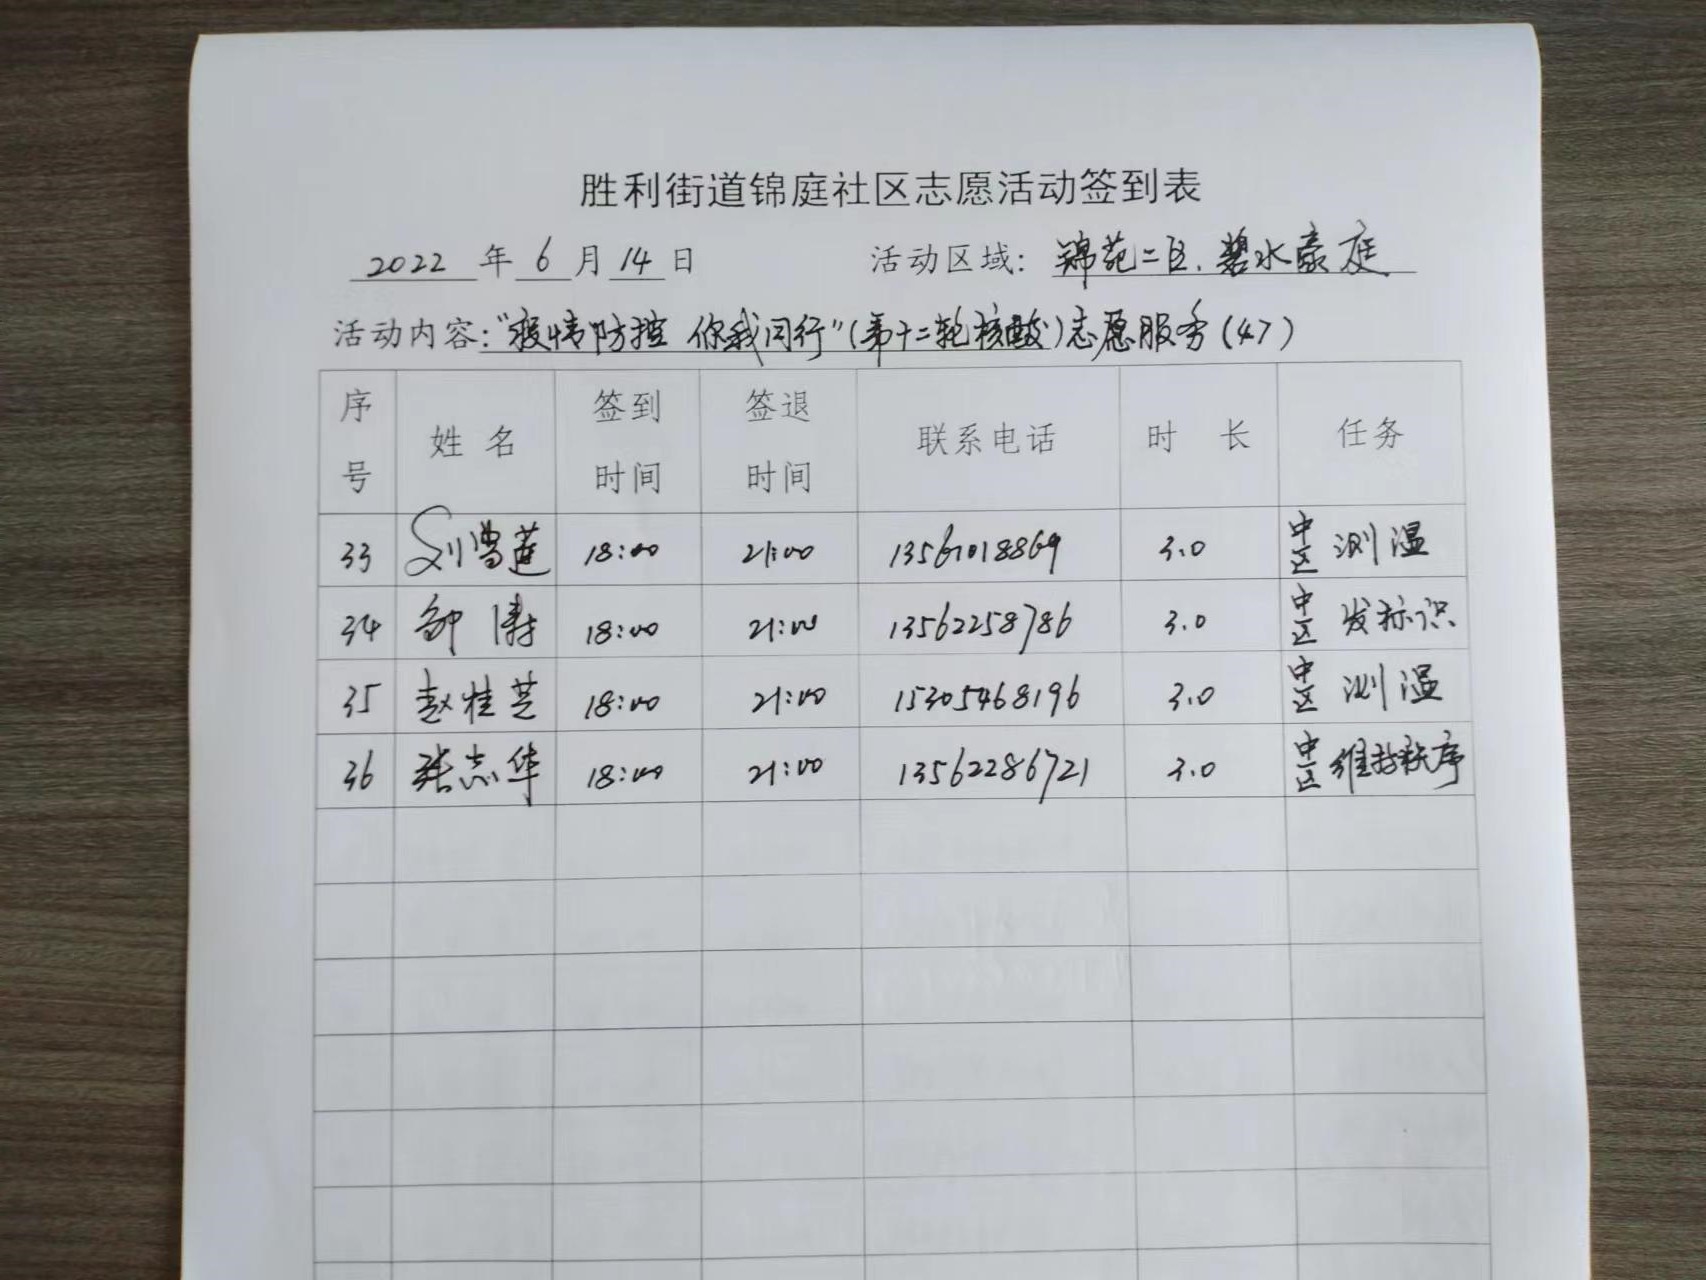 胜利街道锦庭社区志愿活动签到表
2022年6月14日 活动区域：锦苑二区、碧水豪庭
活动内容："疫情防控 你我同行"(第十二轮核酸)志愿服务(47)
序号 姓名 签到时间 签退时间 联系电话 时长 任务
33 刘雪莲 18:00 21:00 13561018869 3.0 中区 测温
34 邹涛 18:00 21:00 13562258786 3.0 中区 发标识
35 赵桂芝 18:00 21:00 15305468196 3.0 中区 测温
36 张志华 18:00 21:00 13562286721 3.0 中区 维持秩序